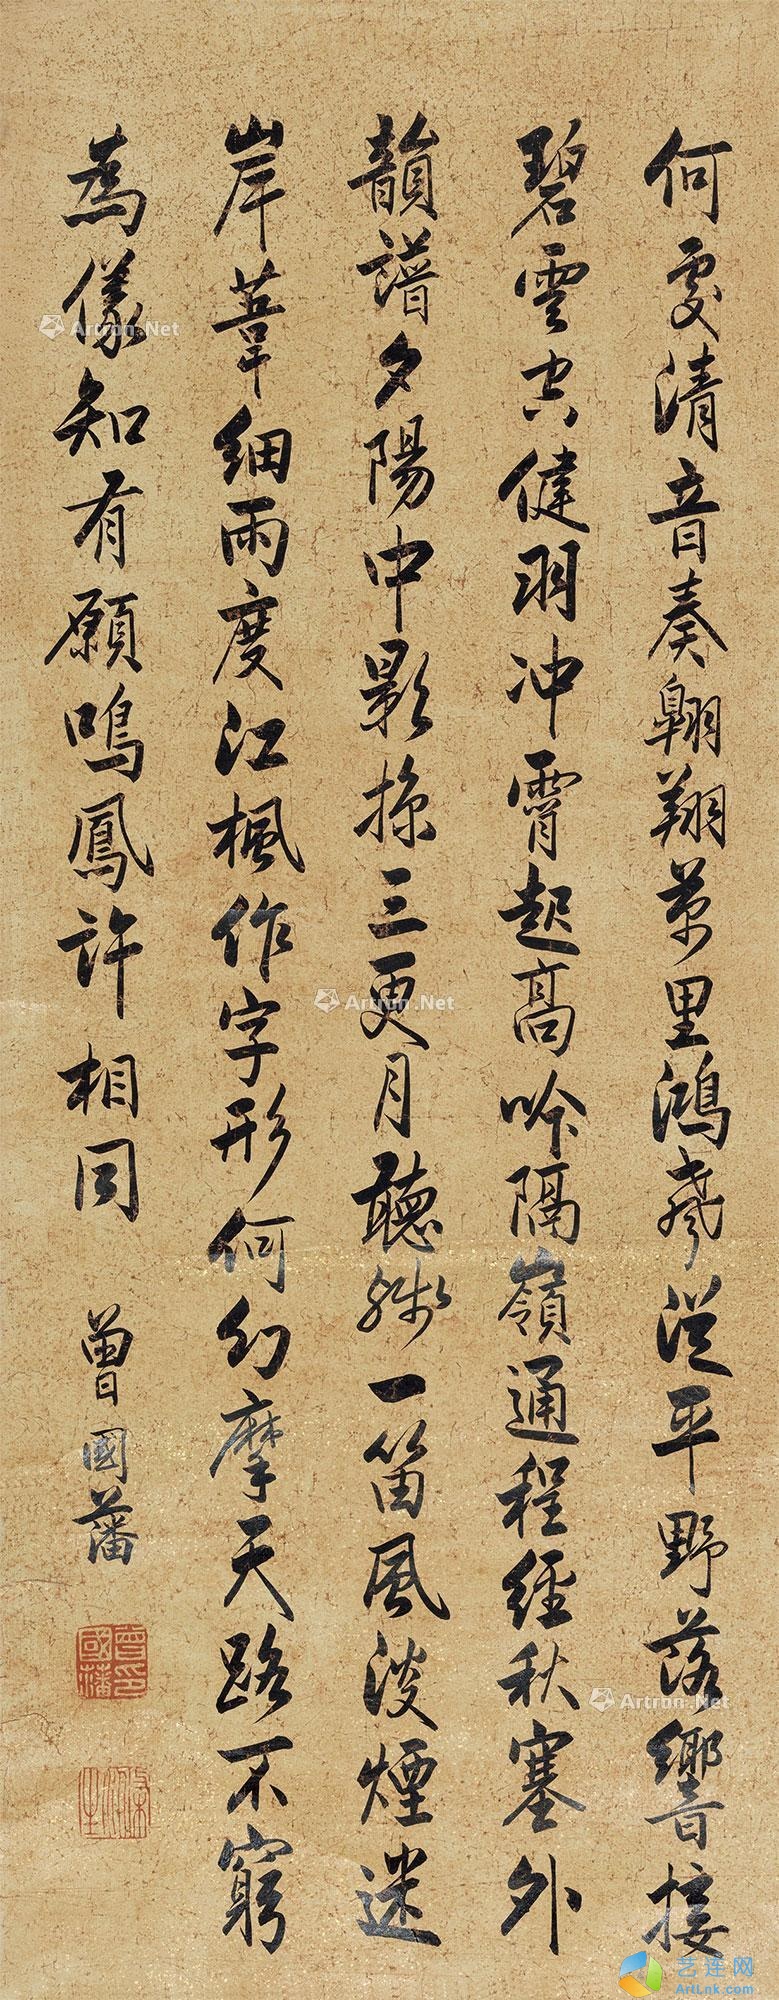 何處清音奏翱翔萬里鴻聲從平野落響接
碧雲空健羽冲霄起高吟隔嶺通程經秋塞外
韻譜夕陽中影掠三更月聽殘一笛風淡煙迷
岸葦細雨度江楓作字形何幻摩天路不窮
為儀知有願鳴鳳許相同
曾國藩
曾國藩印
Artron.Net
Artron.Net
Artron.Net
艺连网
ArtLnk.com